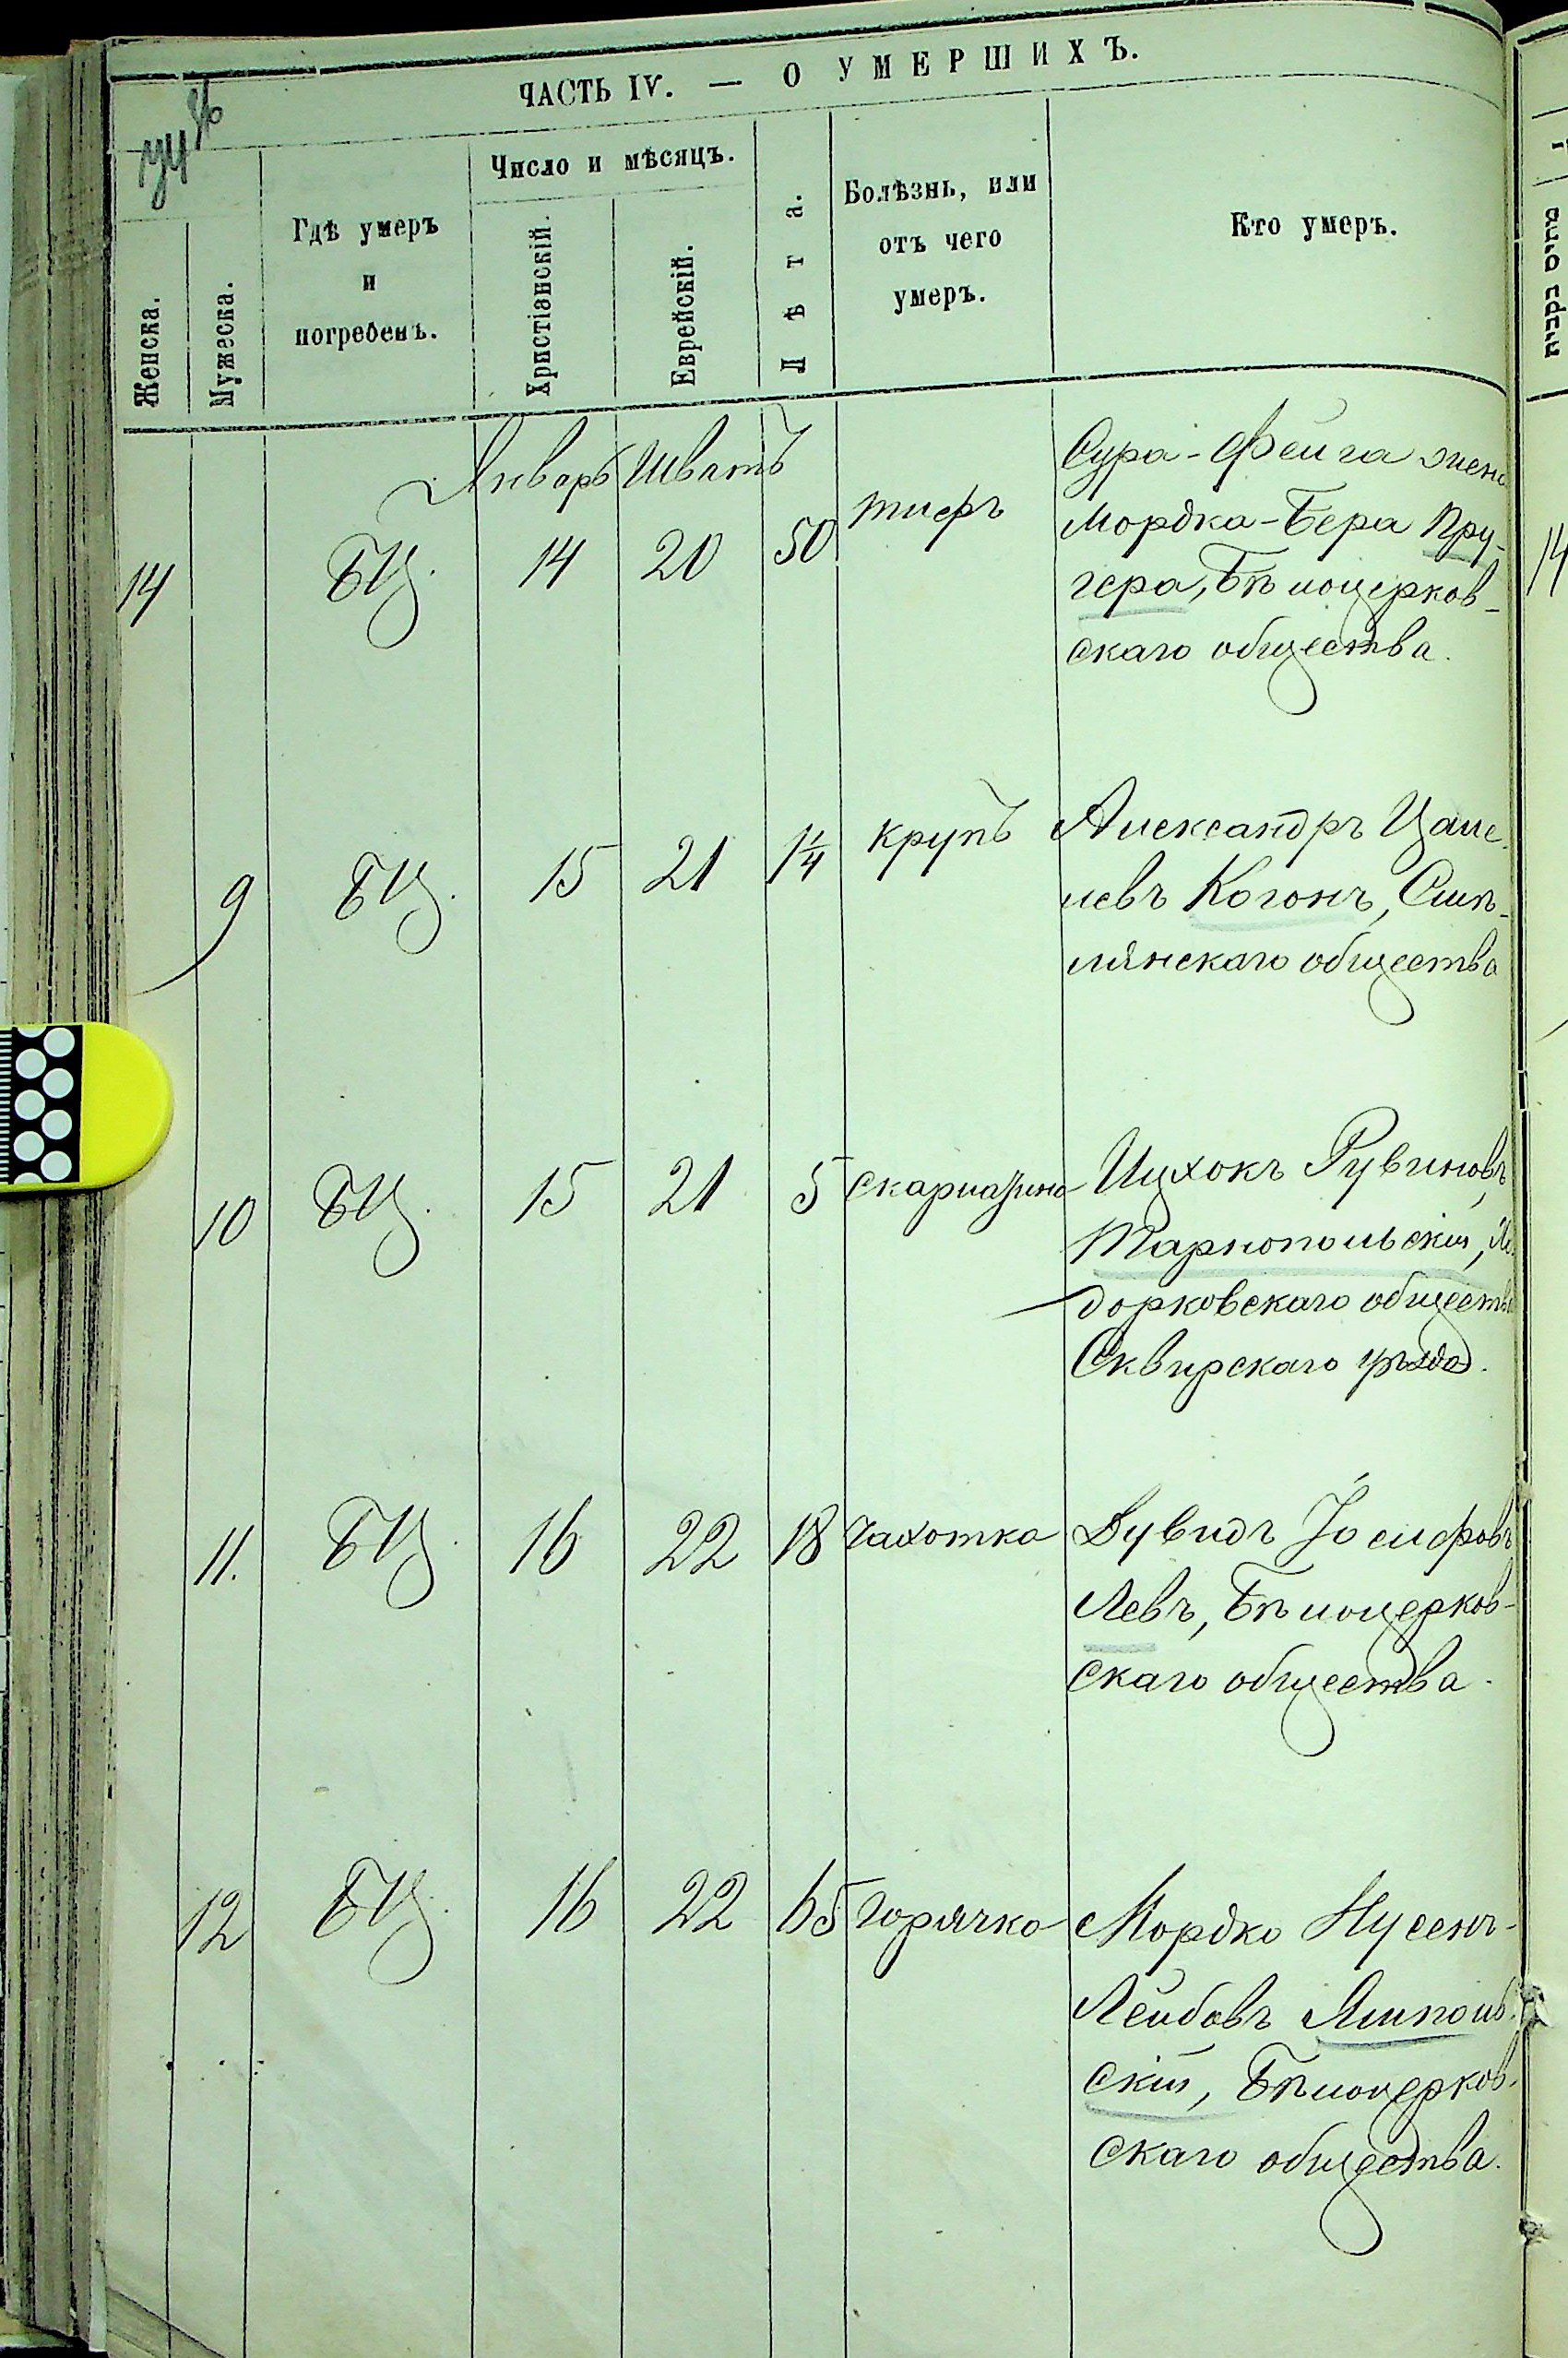 ЧАСТЬ IV. — О УМЕРШИХЪ.
Женска.
Мужеска.
Гдѣ умеръ
и
погребенъ.
Число и мѣсяцъ.
Христіанскій.
Еврейскій.
Лѣта.
Болѣзнь, или
отъ чего
умеръ.
Кто умеръ.
Январь Шватъ
14 БЦ. 14 20 50 тифъ
Сура-Фейга жена
Мордка-Бера Кру-
гера, Бѣлоцерков-
скаго общества.
9 БЦ. 15 21 1 1/4 крупъ
Александръ Цале-
левъ Когонъ, Смѣ-
лянскаго общества
10 БЦ. 15 21 5 скарлатина
Ицхокъ Рувиновъ
Тарнопольскій,
дорковскаго общества
Сквирскаго уѣзда.
11. БЦ. 16 22 18 чахотка
Дувидъ Іосифовъ
Левъ, Бѣлоцерков-
скаго общества.
12 БЦ. 16 22 65 горячка
Мордко Нусенъ-
Лейбовъ Ямполь-
скій, Бѣлоцерков-
скаго общества.
14